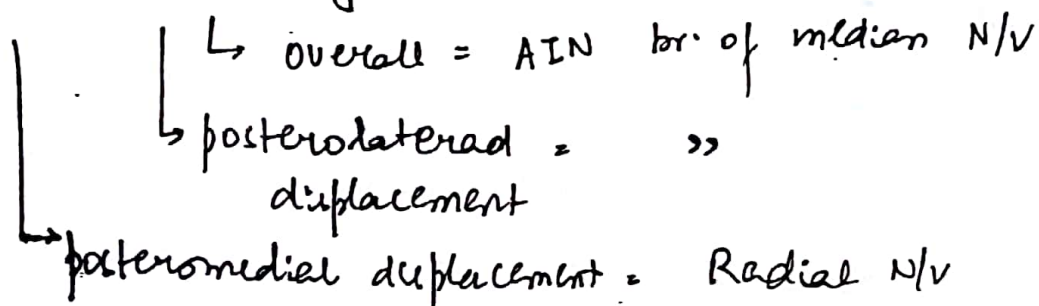 ↳ overall = AIN br. of median N/V
↳ posterolaterad = ,,
displacement
↳ posteromedial displacement = Radial N/V